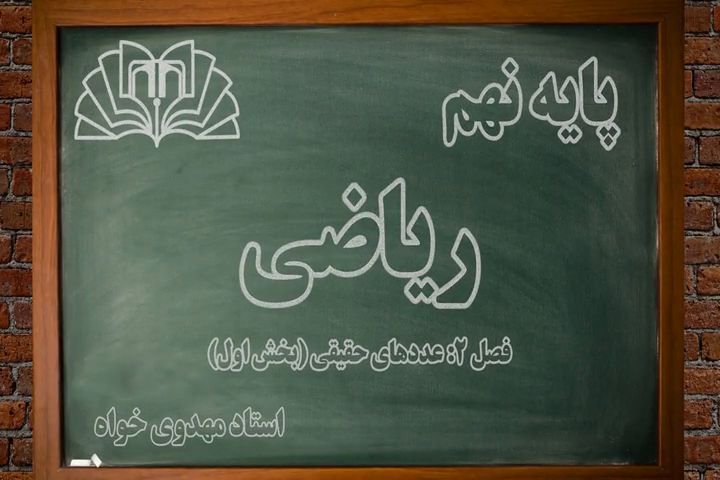 پایه نهم
ریاضی
فصل ۲: عددهای حقیقی (بخش اول)
استاد مهدوی خواه